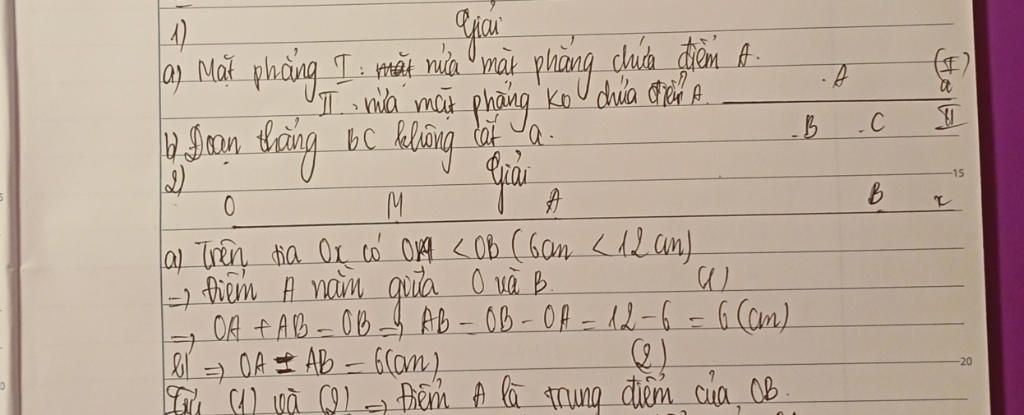 1) Giải
a) Mặt phẳng I: nửa mặt phẳng chứa điểm A.
. A (I)
II: nửa mặt phẳng ko chứa điểm A. a
b) Đoạn thẳng BC không cắt a. .B .C II
2) Giải
15
O M A B x
a) Trên tia Ox có OA < OB (6cm < 12cm)
=> Điểm A nằm giữa O và B. (1)
=> OA + AB = OB => AB = OB - OA = 12 - 6 = 6 (cm)
=> OA = AB = 6(cm) (2)
20
Từ (1) và (2) => Điểm A là trung điểm của OB.